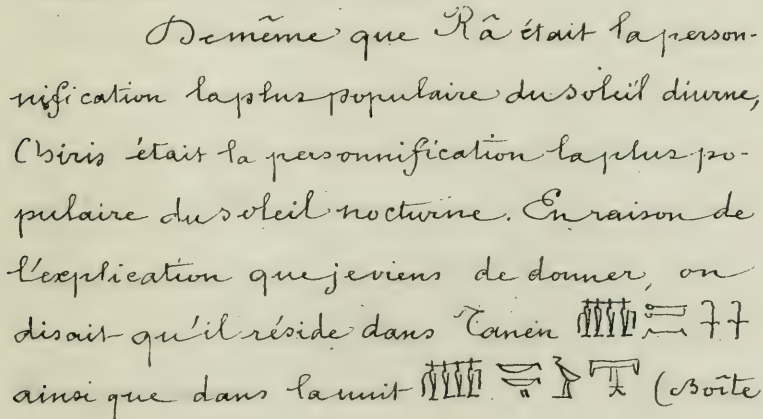 De même que Râ était la person-
nification la plus populaire du soleil diurne,
Osiris était la personnification la plus po-
pulaire du soleil nocturne. En raison de
l'explication que je viens de donner, on
disait qu'il réside dans Tanen
ainsi que dans la nuit (Boîte